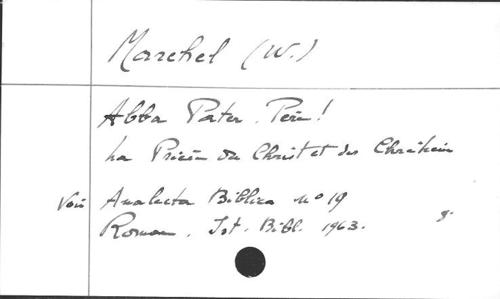 Marchel (W.)
Abba Pater. Père!
La Prière du Christ et des Chrétiens
Voir Analecta Biblica no 19
Romae. Ist. Bibl. 1963. 8°